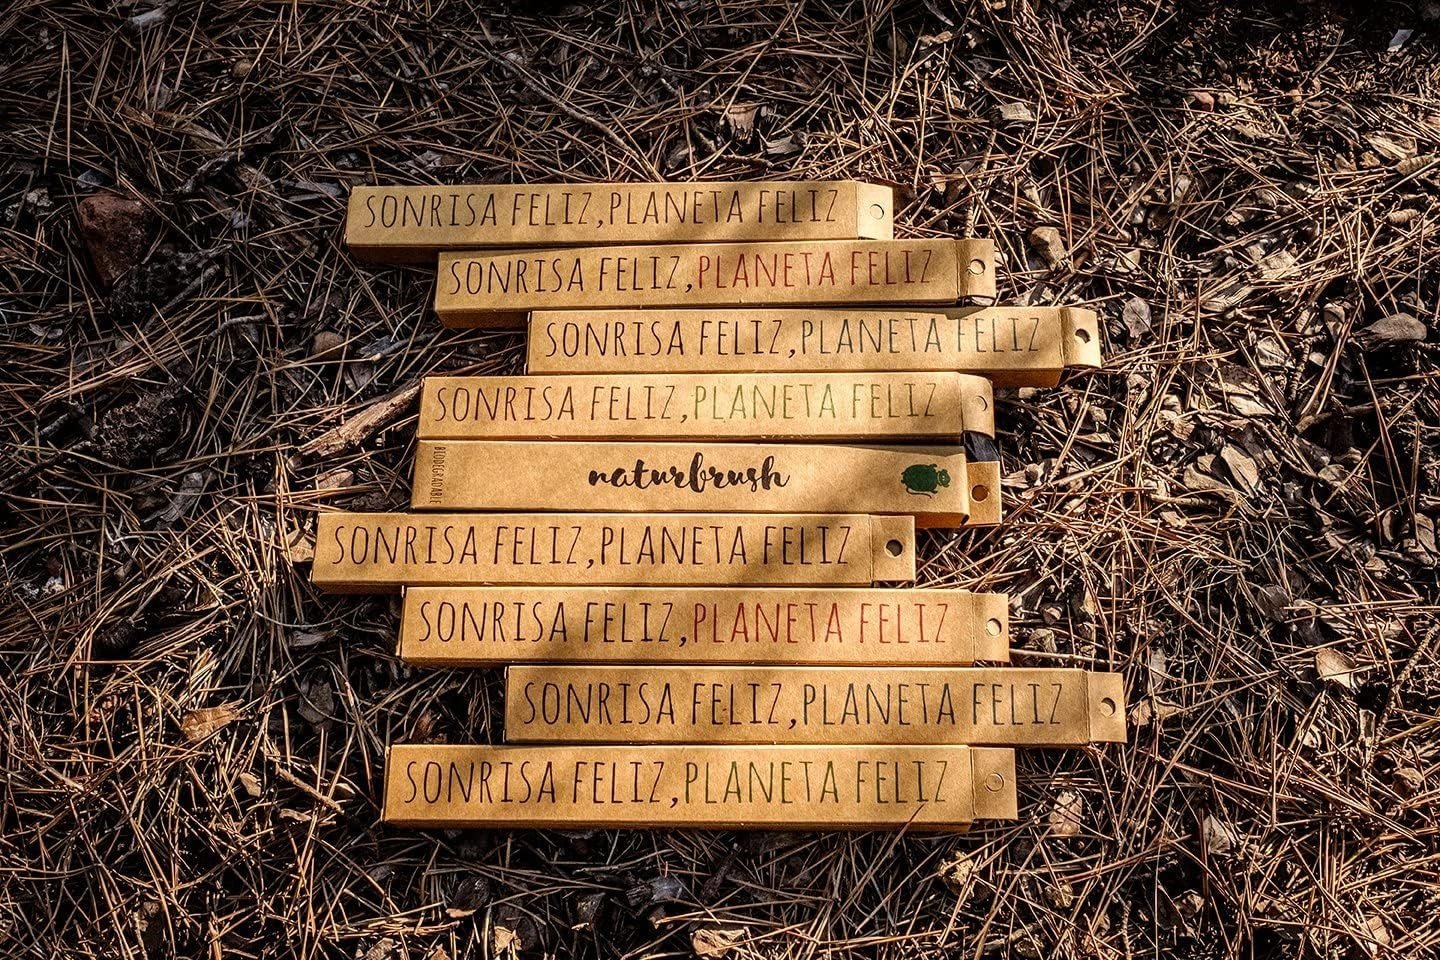 SONRISA FELIZ,PLANETA FELIZ
SONRISA FELIZ,PLANETA FELIZ
SONRISA FELIZ,PLANETA FELIZ
SONRISA FELIZ,PLANETA FELIZ
BIODEGRADABLE
naturbrush
SONRISA FELIZ,PLANETA FELIZ
SONRISA FELIZ,PLANETA FELIZ
SONRISA FELIZ,PLANETA FELIZ
SONRISA FELIZ,PLANETA FELIZ